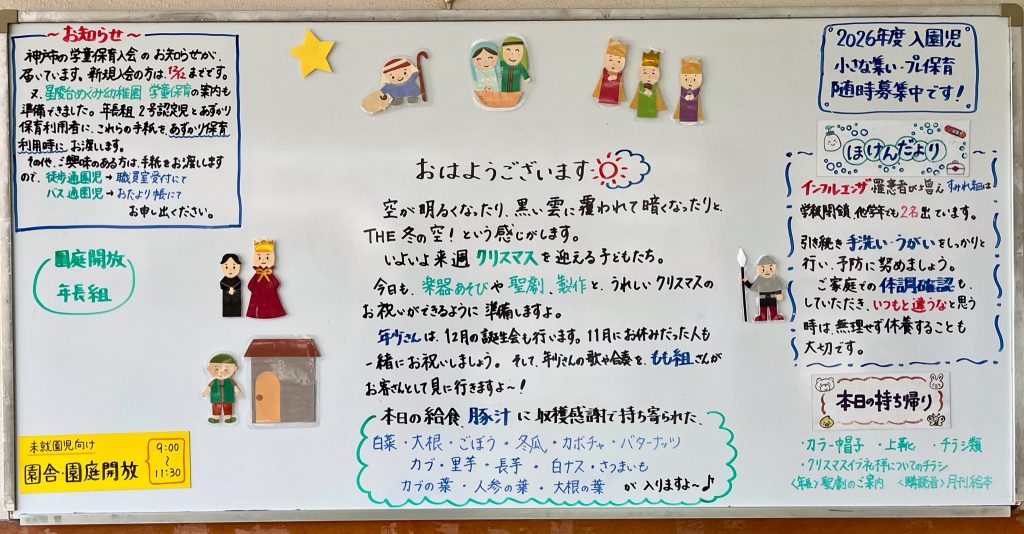 ～お知らせ～
神戸市の学童保育入会のお知らせが、
届いています。新規入会の方は、12/12までです。
又、星陵台めぐみ幼稚園 学童保育の案内も
準備できました。年長組 2号認定児とあずかり
保育利用者に、これらの手紙を、あずかり保育
利用時に お渡します。
その他、ご興味のある方は、手紙をお渡しします
ので、徒歩通園児→職員室受付にて
バス通園児→おたより帳にて
お申し出ください。
園庭開放
年長組
未就園児向け
園舎・園庭開放
9:00
～
11:30
おはようございます
空が明るくなったり、黒い雲に覆われて暗くなったりと、
THE 冬の空！という感じがします。
いよいよ来週 クリスマスを迎える子どもたち。
今日も、楽器あそびや聖劇、製作と、うれしいクリスマスの
お祝いができるように準備しますよ。
年少さんは、12月の誕生会も行います。11月にお休みだった人も
一緒にお祝いしましょう。そして、年少さんの歌や合奏を、もも組さんが
お客さんとして見に行きますよ～！
本日の給食、豚汁に収穫感謝で持ち寄られた、
白菜・大根・ごぼう・冬瓜・カボチャ・バターナッツ
カブ・里芋・長芋・白ナス・さつまいも
カブの葉・人参の葉・大根の葉 が入りますよ～♪
2026年度 入園児
小さな集い・プレ保育
随時募集中です！
ほけんだより
インフルエンザ罹患者が増え すみれ組は
学級閉鎖、他学年でも2名出ています。
引き続き手洗い・うがいをしっかりと
行い、予防に努めましょう。
ご家庭での体調確認も、
していただき、いつもと違うなと思う
時は、無理せず休養することも
大切です。
本日の持ち帰り
・カラー帽子 ・上靴 ・チラシ類
・クリスマスイブ礼拝についてのチラシ
〈年長〉聖劇のご案内 〈購読者〉月刊絵本